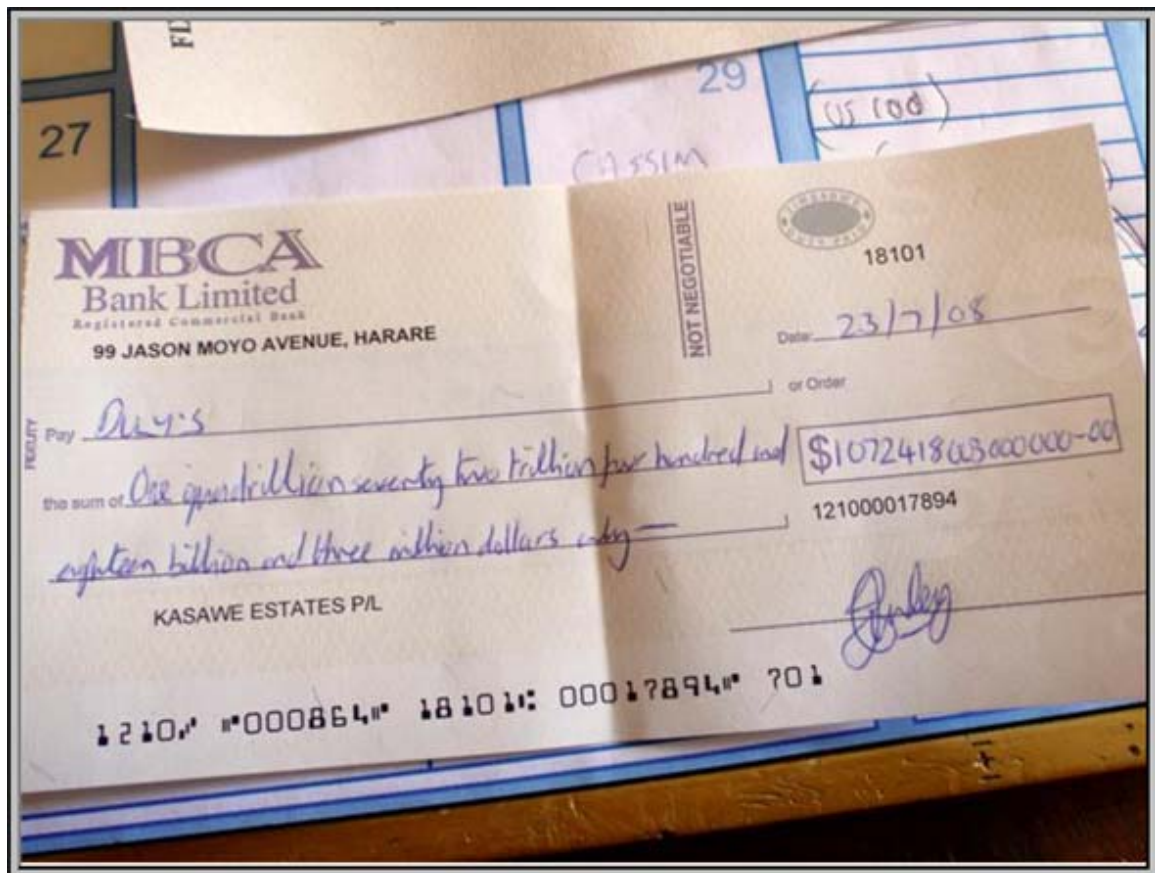 27
29
(US 100)
CASSIM
MBCA
Bank Limited
Registered Commercial Bank
99 JASON MOYO AVENUE, HARARE
NOT NEGOTIABLE
ZIMBABWE
DUTY PAID
18101
Date 23/7/08
Pay Duly's or Order
the sum of One quadrillion seventy two trillion four hundred and
$1072418003000000-00
eighteen billion and three million dollars only—
121000017894
KASAWE ESTATES P/L
1210 000864 18101 00017894 701